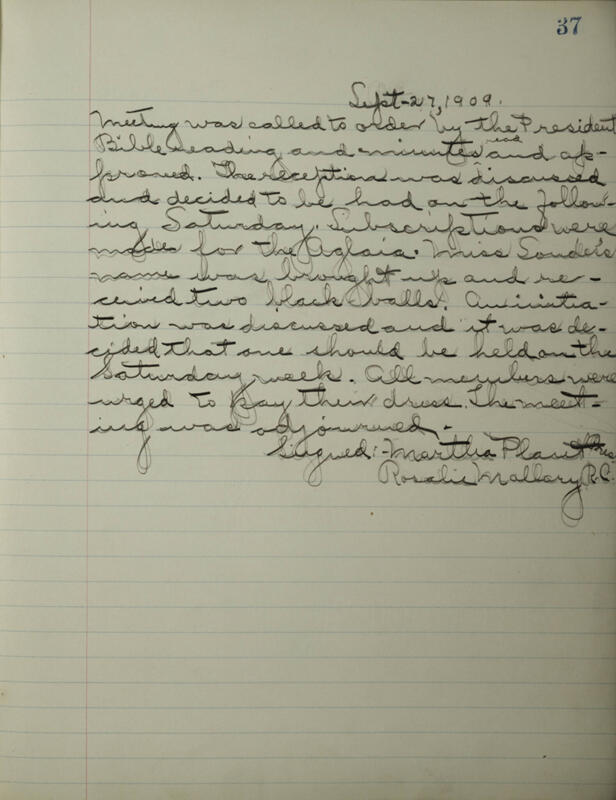 37
Sept-27, 1909.
Meeting was called to order by the President
Bible reading and minutes read and ap-
proved. The reception was discussed
and decided to be had on the follow-
ing Saturday. Subscriptions were
made for the Aglaia. Miss Souder's
name was brought up and re-
ceived two black balls. An initia-
tion was discussed and it was de-
cided that one should be held on the
Saturday week. All members were
urged to pay their dress. The meet-
ing was adjourned.
Signed:- Martha Plant Pres
Rosalie Mallary R.C.